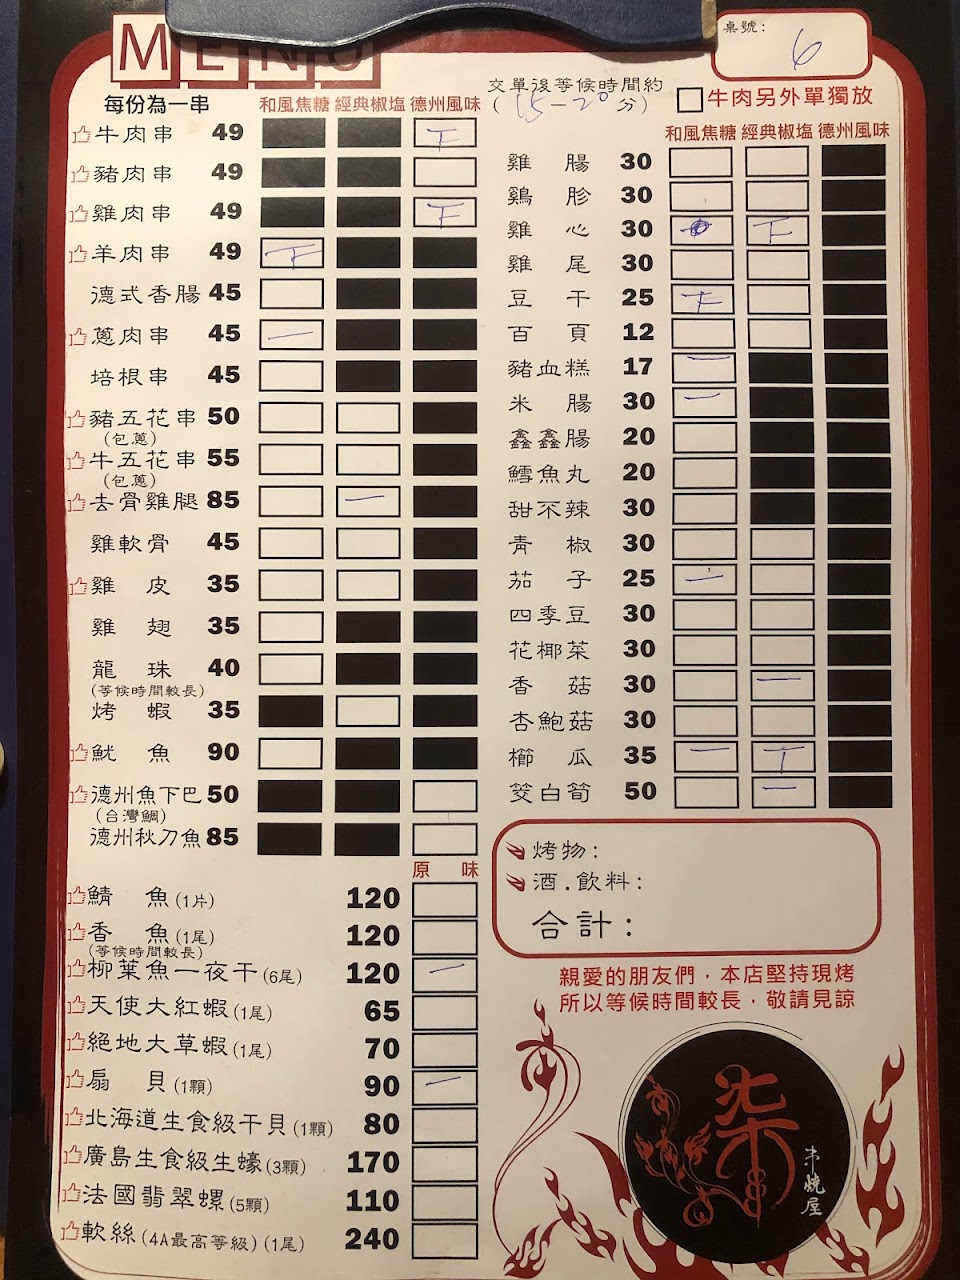 MENU
桌號: 6
每份為一串
和風焦糖 經典椒塩 德州風味
牛肉串 49
豬肉串 49
雞肉串 49
羊肉串 49
德式香腸 45
蔥肉串 45
培根串 45
豬五花串 50
(包蔥)
牛五花串 55
(包蔥)
去骨雞腿 85
雞軟骨 45
雞皮 35
雞翅 35
龍珠 40
(等候時間較長)
烤蝦 35
魷魚 90
德州魚下巴 50
(台灣鯛)
德州秋刀魚 85
原味
鯖魚(1片) 120
香魚(1尾) 120
(等候時間較長)
柳葉魚一夜干(6尾) 120
天使大紅蝦(1尾) 65
絕地大草蝦(1尾) 70
扇貝(1顆) 90
北海道生食級干貝(1顆) 80
廣島生食級生蠔(3顆) 170
法國翡翠螺(5顆) 110
軟絲(4A最高等級)(1尾) 240
交單後等候時間約
(15-20分)
牛肉另外單獨放
和風焦糖 經典椒塩 德州風味
雞腸 30
鷄胗 30
雞心 30
雞尾 30
豆干 25
百頁 12
豬血糕 17
米腸 30
鑫鑫腸 20
鱈魚丸 20
甜不辣 30
青椒 30
茄子 25
四季豆 30
花椰菜 30
香菇 30
杏鮑菇 30
櫛瓜 35
筊白筍 50
烤物:
酒.飲料:
合計:
親愛的朋友們，本店堅持現烤
所以等候時間較長，敬請見諒
柒
串燒屋